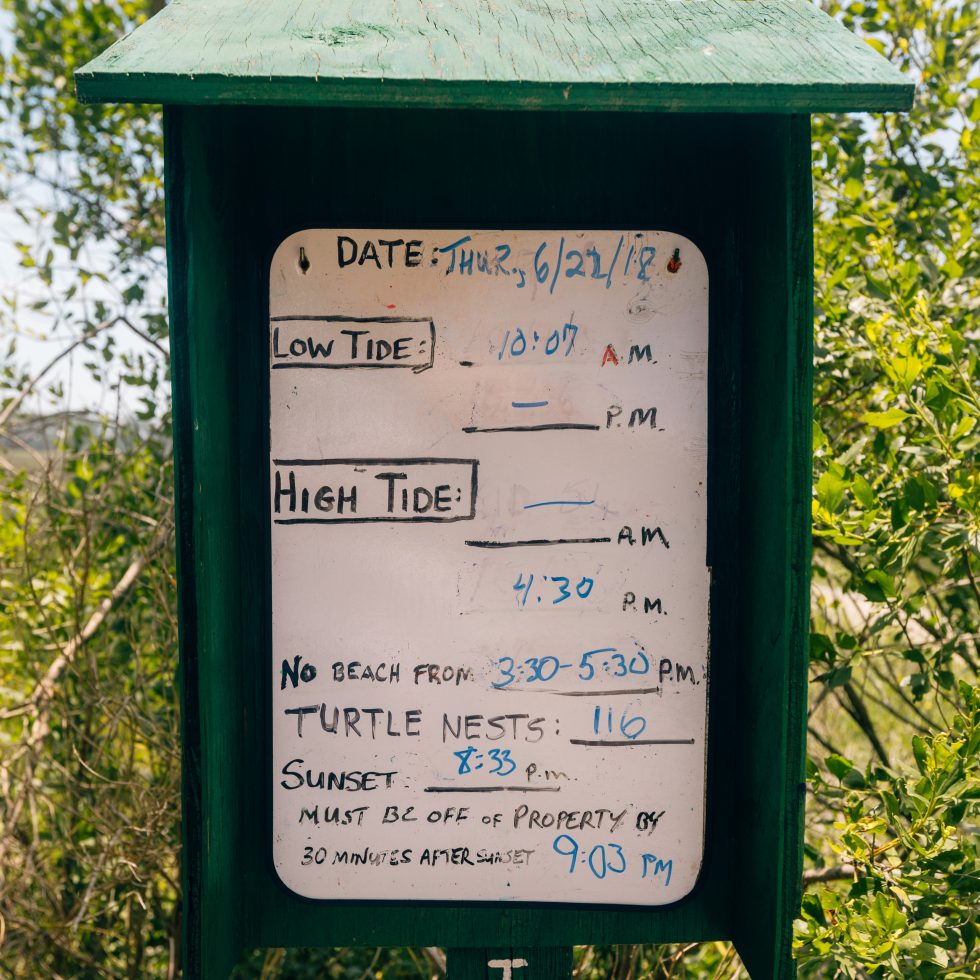 DATE: THUR, 6/21/18
LOW TIDE: 10:07 A.M.
— P.M.
HIGH TIDE: — A.M
4:30 P.M.
NO BEACH FROM 3:30-5:30 P.M.
TURTLE NESTS: 116
SUNSET: 8:33 P.m.
MUST BE OFF OF PROPERTY BY
30 MINUTES AFTER SUNSET 9:03 PM